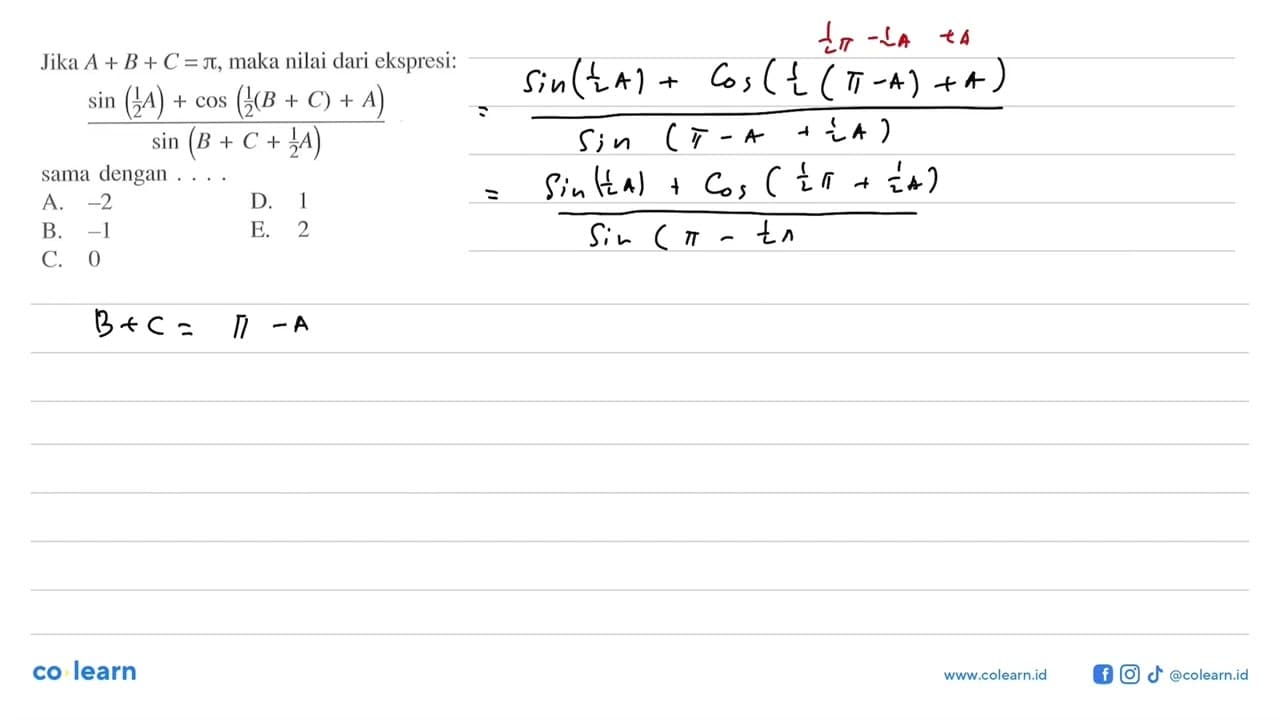 Jika A + B + C = π, maka nilai dari ekspresi:
sin (½A) + cos (½(B + C) + A)
sin (B + C + ½A)
sama dengan . . . .
A. –2 D. 1
B. –1 E. 2
C. 0
B + C = π - A
½π - ½A + A
= Sin(½A) + Cos(½(π - A) + A)
Sin (π - A + ½A)
= Sin(½A) + Cos(½π + ½A)
Sin (π - ½A
co learn
www.colearn.id @colearn.id